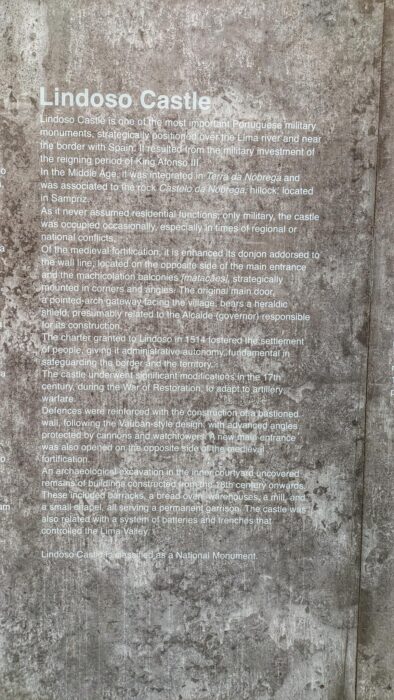 Lindoso Castle
Lindoso Castle is one of the most important Portuguese military
monuments, strategically positioned over the Lima river and near
the border with Spain. It resulted from the military investment of
the reigning period of King Afonso III.
In the Middle Age, it was integrated in Terra da Nóbrega and
was associated to the rock Castelo da Nóbrega, hillock, located
in Sampriz.
As it never assumed residential functions, only military, the castle
was occupied occasionally, especially in times of regional or
national conflicts.
Of the medieval fortification, it is enhanced its donjon addorsed to
the wall line, located on the opposite side of the main entrance
and the machicolation balconies [matacães], strategically
mounted in corners and angles. The original main door,
a pointed-arch gateway facing the village, bears a heraldic
shield, presumably related to the Alcaide (governor) responsible
for its construction.
The charter granted to Lindoso in 1514 fostered the settlement
of people, giving it administrative autonomy, fundamental in
safeguarding the border and the territory.
The castle underwent significant modifications in the 17th
century, during the War of Restoration, to adapt to artillery
warfare.
Defences were reinforced with the construction of a bastioned
wall, following the Vauban-style design, with advanced angles
protected by cannons and watchtowers. A new main entrance
was also opened on the opposite side of the medieval
fortification.
An archaeological excavation in the inner courtyard uncovered
remains of buildings constructed from the 18th century onwards.
These included barracks, a bread oven, warehouses, a mill, and
a small chapel, all serving a permanent garrison. The castle was
also related with a system of batteries and trenches that
controlled the Lima Valley.
Lindoso Castle is classified as a National Monument.